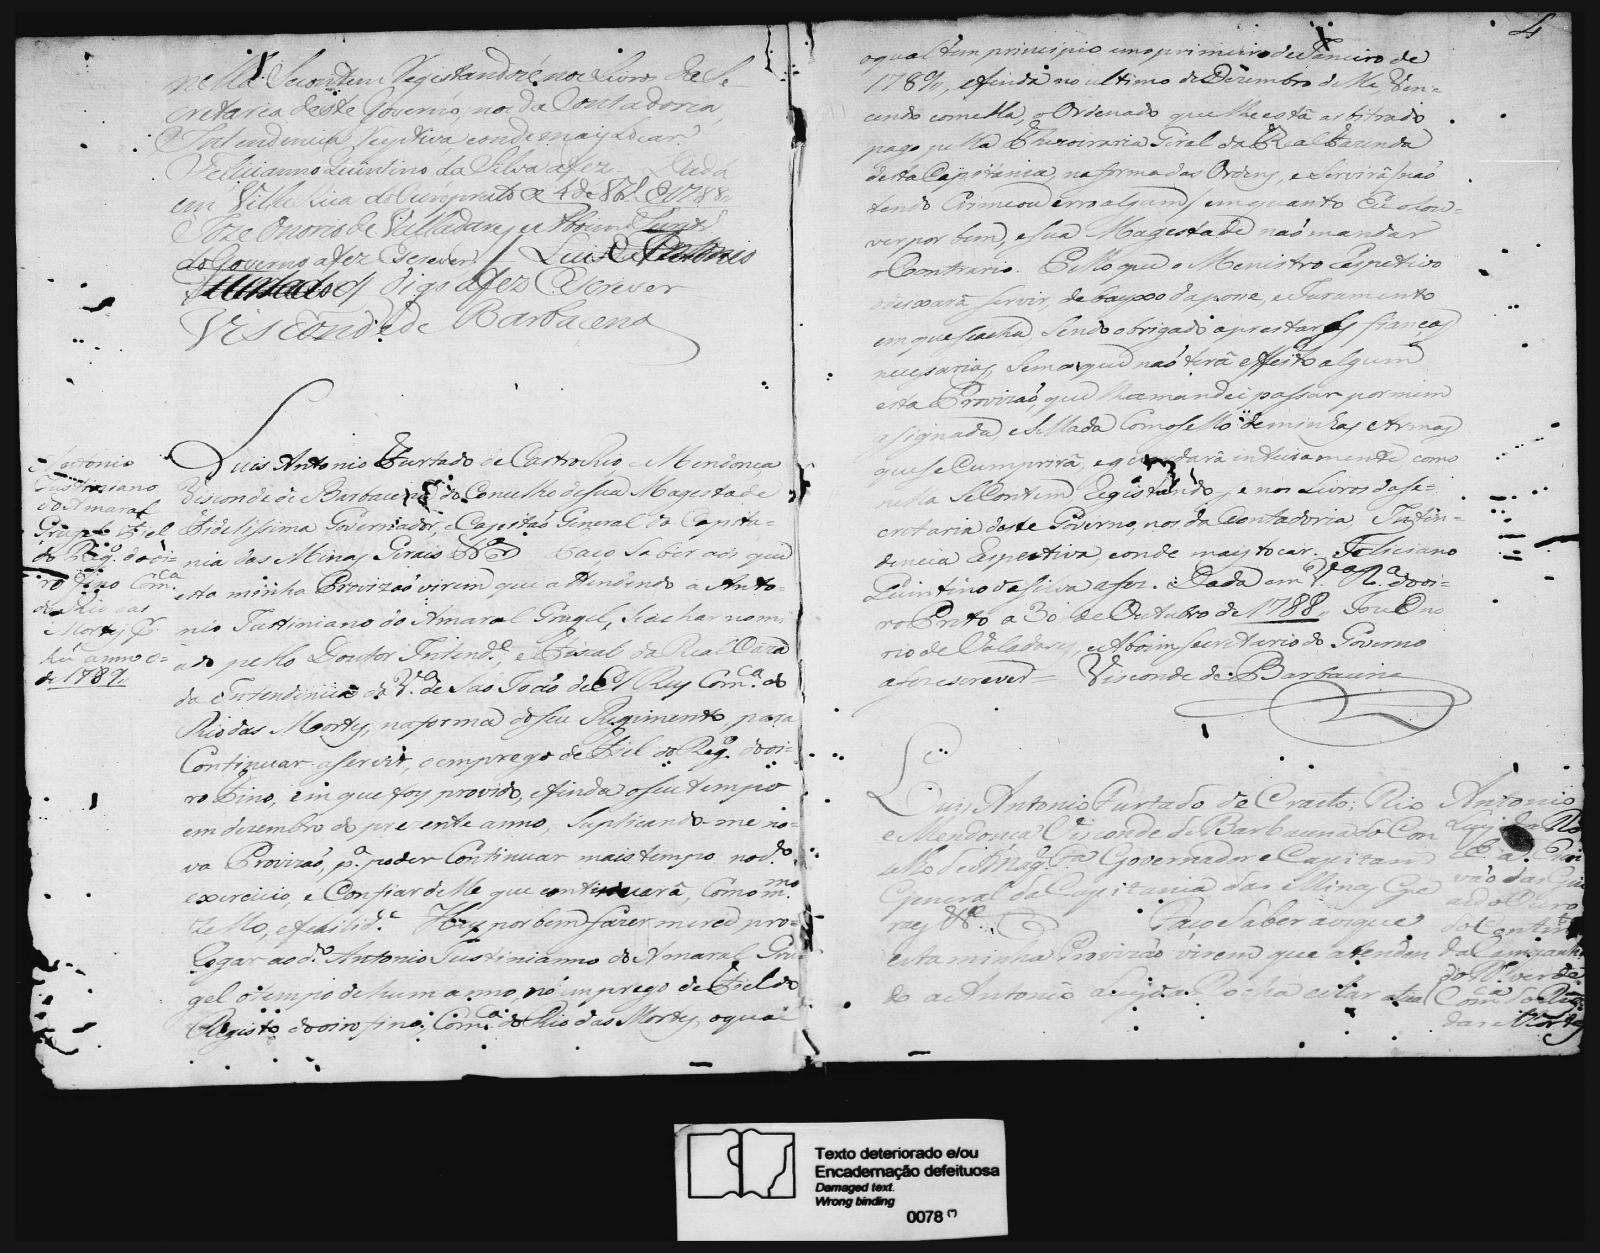 nella Secontem Registandoce nos Livros da Se-
cretaria deste Governo, nos da Contadoria,
e Intendencia Respetiva, eonde mais tocar.
Felliciano Quintino da Silva afez. Dada
em Villa Rica do Ouropreto a 4 de 1788
Joze Onorio de Valladares e Aboim
do Governo afez Escrever / Luis Antonio
Furtado digo afez Escrever
Visconde de Barbacena
Antonio
Justiniano
do Amaral
Grugel Fiel
do Reg.o dooi-
ro fino Com.ca
do Rio das
Mortes
anno
de 1789
Luis Antonio Furtado de Castro Rio e Mendonca
Bisconde de Barbacena do Concelho desua Magestade
Fidelissima Governador, e Capitaõ General da Capita-
nia das Minas Gerais &a Faco Saber aos que
esta minha Provizaõ virem que attendendo a Anto-
nio Justiniano do Amaral Grugel, Seachar nomi
ado pello Doutor Intend.e e Fiscal da Real Caza
da Intendencia da V.a de Saõ Joaõ del Rey Com.ca do
Rio das Mortes, naforma doseu Regimento, para
Continuar aservir, o emprego de Fiel do Reg.o dooi-
ro Fino, emque foy provido, efinda oseu tempo
em dezembro do prezente anno, Suplicando-me no-
va Provizaõ, p.a poder Continuar maistempo nod.o
exercicio, e Confiar delle que continuará, Como m.mo
zello, efedilid.e Hey porbem fazer merce pro-
Rogar aod.o Antonio Justinianno do Amaral Gru
gel otempo dehum anno, no emprego de Fiel do
Registo dooiro fino, Com.ca do Rio das Mortes, oqual
4
oqual tem principio emoprimeiro de Janeiro de
1789, efinda no ultimo de Dezembro delle, Ven-
cendo comella, o Ordenado que lhe está arbitrado
pago pella Thezoiraria Geral da Real Fazenda
desta Capitania, naforma das Ordens, e servirá (naõ
tendo Crime ou erro algum) emquanto Eu o hou-
ver por bem, e sua Magestade naõ mandar
o Contrario. Pello que o Menistro Respetivo
odeixará servir, debayxo daposse, e Juramento
em queseacha Sendo obrigado aprestar as fianças
necessarias, Sem o que naõ terá effeito algum
esta Provizaõ, que lhemandei passar por mim
asignada eSellada Comosello deminhas Armas
quese Cumprirá, eguardará inteiramente como
nella SeContem Registando, e nos Livros dase-
cretaria deste Governo, nos da Contadoria, Inten-
dencia Respectiva, eonde mays tocar. Feliciano
Quintino da silva afez. Dada em V.a R.a dooi-
ro Preto a 30 de Outubro de 1788 Joze Ono
rio de Valadares, e Aboim secretario do Governo
afez escrever = Visconde de Barbacena
Luis Antonio Furtado de Crasto, Rio
e Mendonça Visconde de Barbacena do Con
selho de S Mag.e Governador e Capitam
General da Capitania das Minas Ge
raes &a Faço Saber aosque
esta minha Provizaõ virem que atenden
do a Antonio Luis da Rocha estar
Antonio
Luis da Ro
cha
do Ouro
da Campanha
do Rio verde
Com.ca do Rio
das Mortes
Texto deteriorado e/ou
Encadernação defeituosa
Damaged text.
Wrong binding
0078 (*)